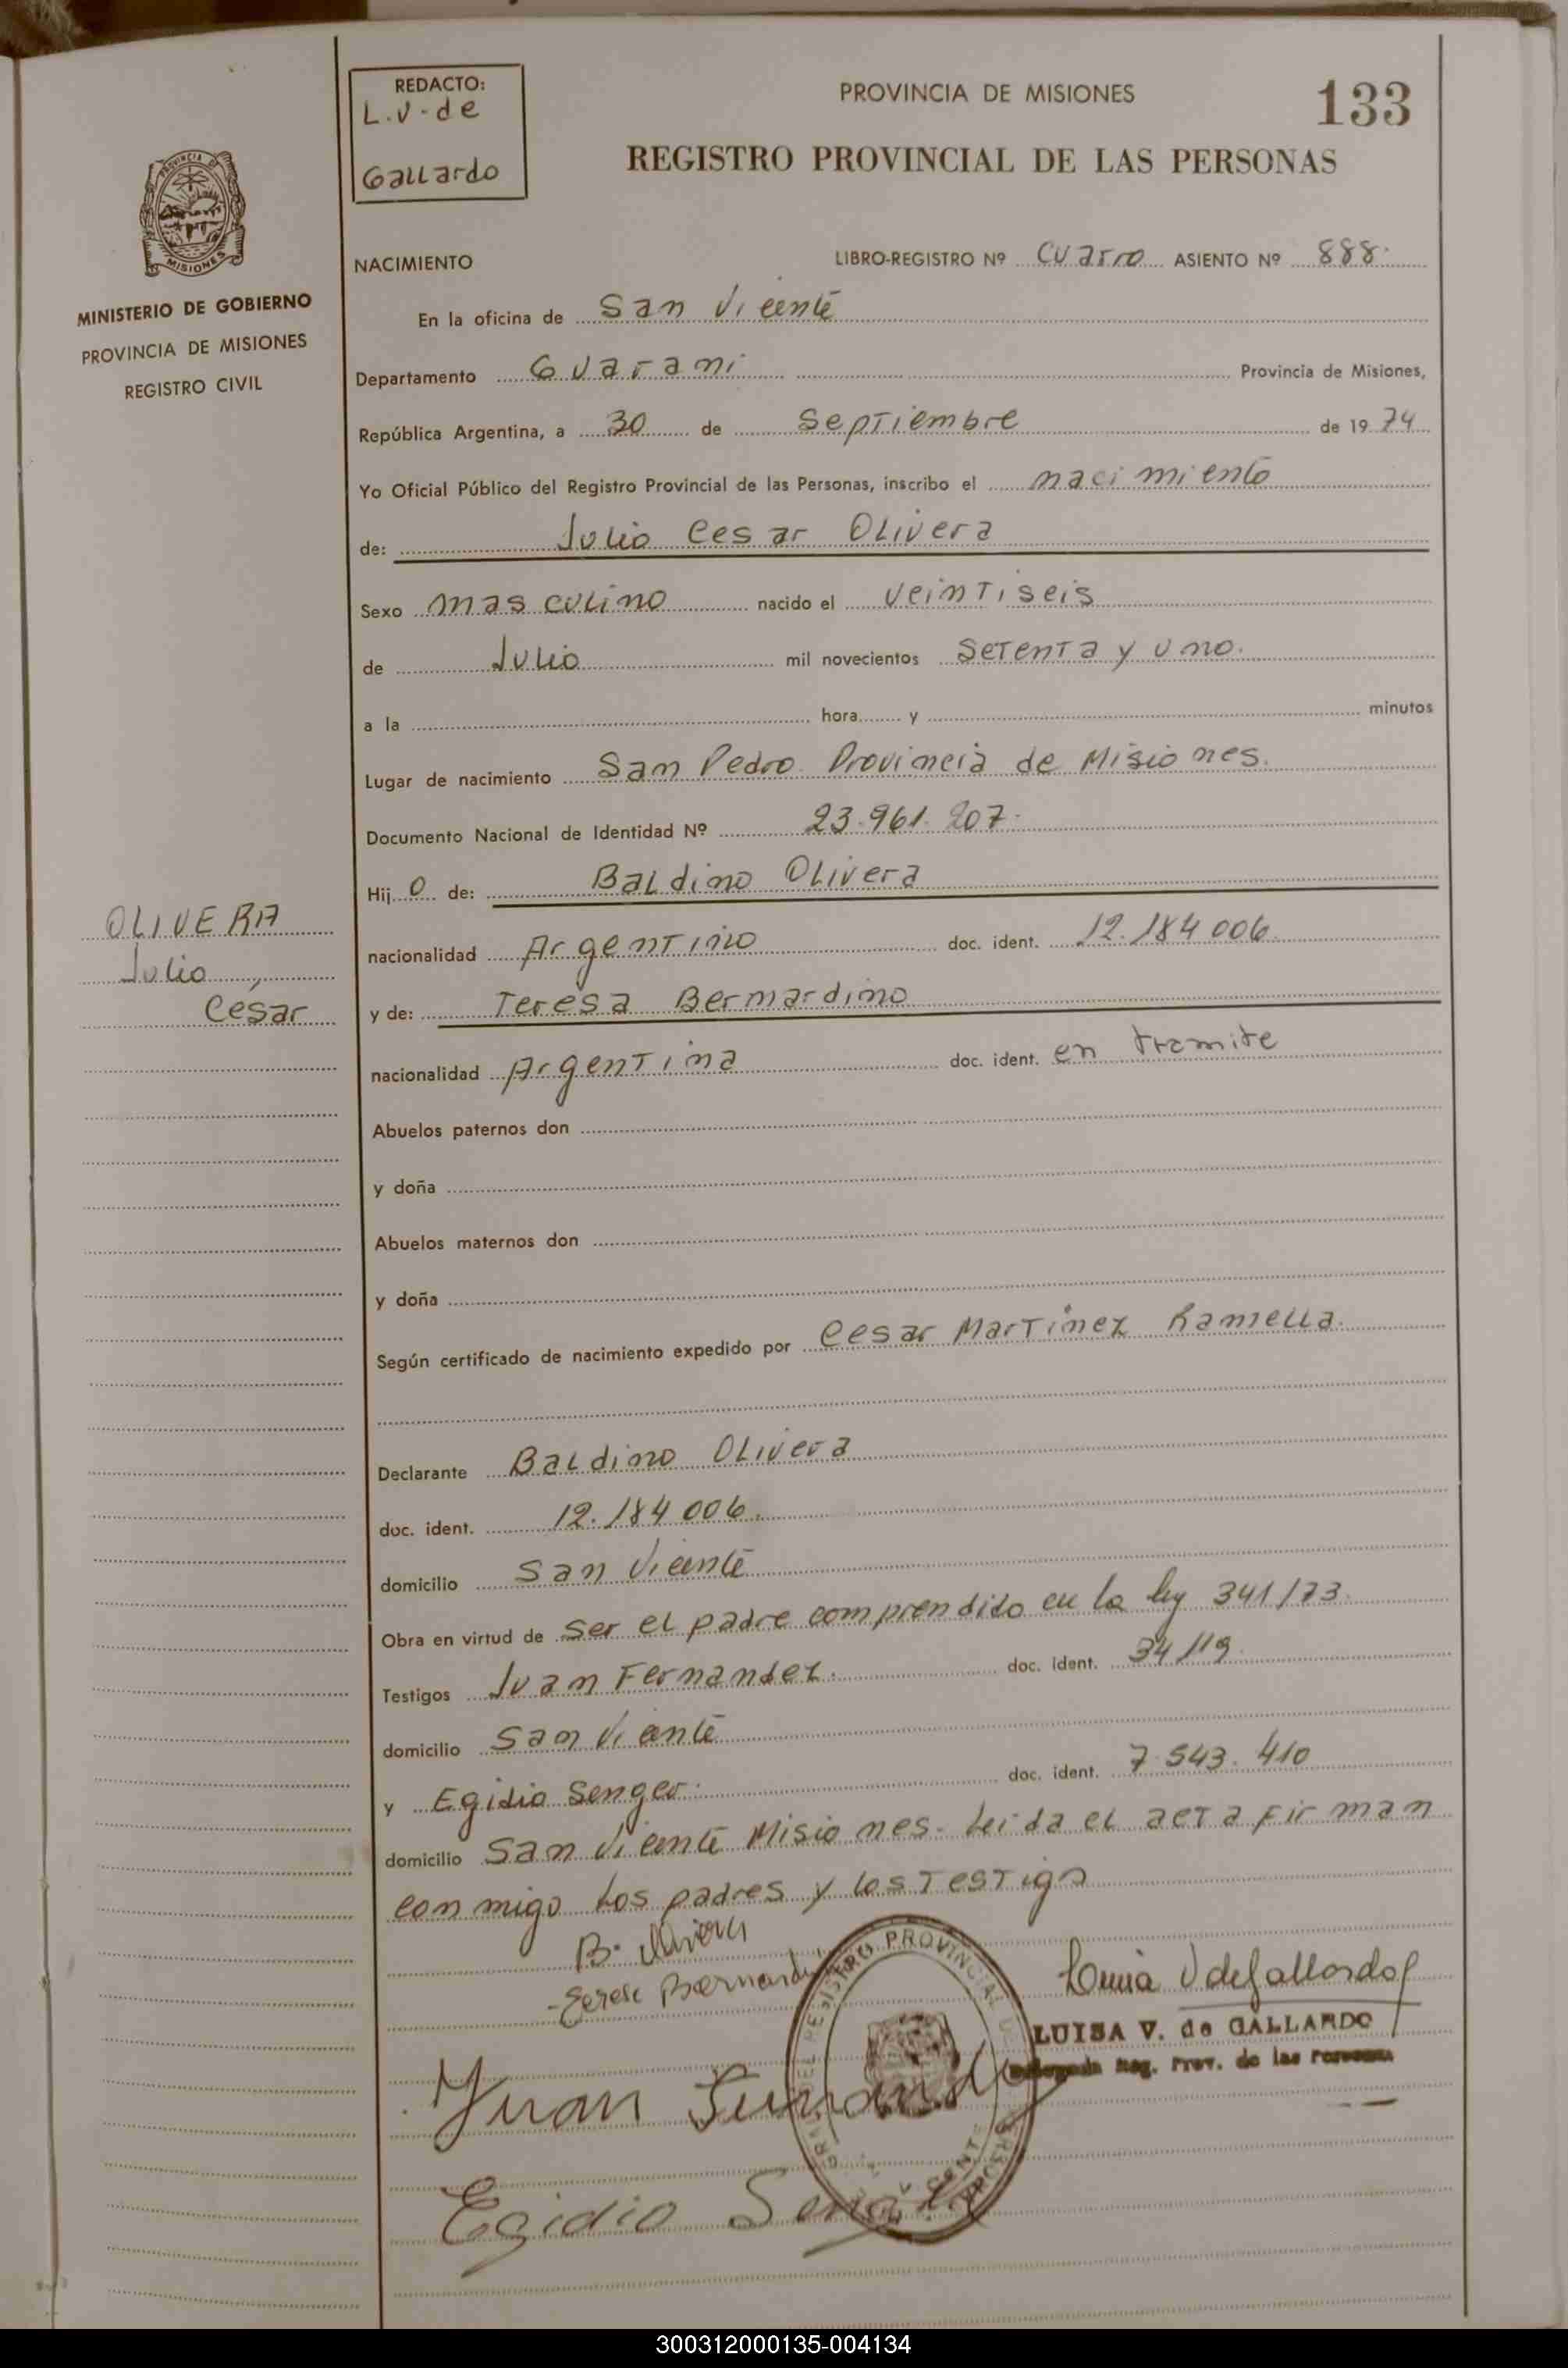 REDACTO:
L.V. de
Gallardo
PROVINCIA DE MISIONES
133
REGISTRO PROVINCIAL DE LAS PERSONAS
PROVINCIA DE
MISIONES
MINISTERIO DE GOBIERNO
PROVINCIA DE MISIONES
REGISTRO CIVIL
NACIMIENTO LIBRO-REGISTRO Nº Cuatro ASIENTO Nº 888.
En la oficina de San Vicente
Departamento Guarani Provincia de Misiones,
República Argentina, a 30 de Septiembre de 1974
Yo Oficial Público del Registro Provincial de las Personas, inscribo el nacimiento
de: Julio Cesar Olivera
Sexo masculino nacido el veintiseis
de Julio mil novecientos setenta y uno.
a la hora y minutos
Lugar de nacimiento San Pedro Provincia de Misiones.
Documento Nacional de Identidad Nº 23.961.207.
Hijo de: Baldino Olivera
nacionalidad Argentino doc. ident. 12.184006.
y de: Teresa Bernardino
nacionalidad Argentina doc. ident. en tramite
OLIVERA
Julio
César
Abuelos paternos don
y doña
Abuelos maternos don
y doña
Según certificado de nacimiento expedido por Cesar Martinez Ramella.
Declarante Baldino Olivera
doc. ident. 12.184006.
domicilio San Vicente
Obra en virtud de ser el padre comprendido en la ley 341/73.
Testigos Juan Fernandez. doc. ident. 34119.
domicilio San Vicente
y Egidio Senger. doc. ident. 7.543.410
domicilio San Vicente Misiones. Leida el acta firman
conmigo los padres y los testigo
B. Olivera
Terese Bernardi
Luisa V de Gallardo
LUISA V. de GALLARDO
Reg. Prov. de las Personas
REGISTRO PROVINCIAL DE
Juan Fernand
Egidio Senger
300312000135-004134